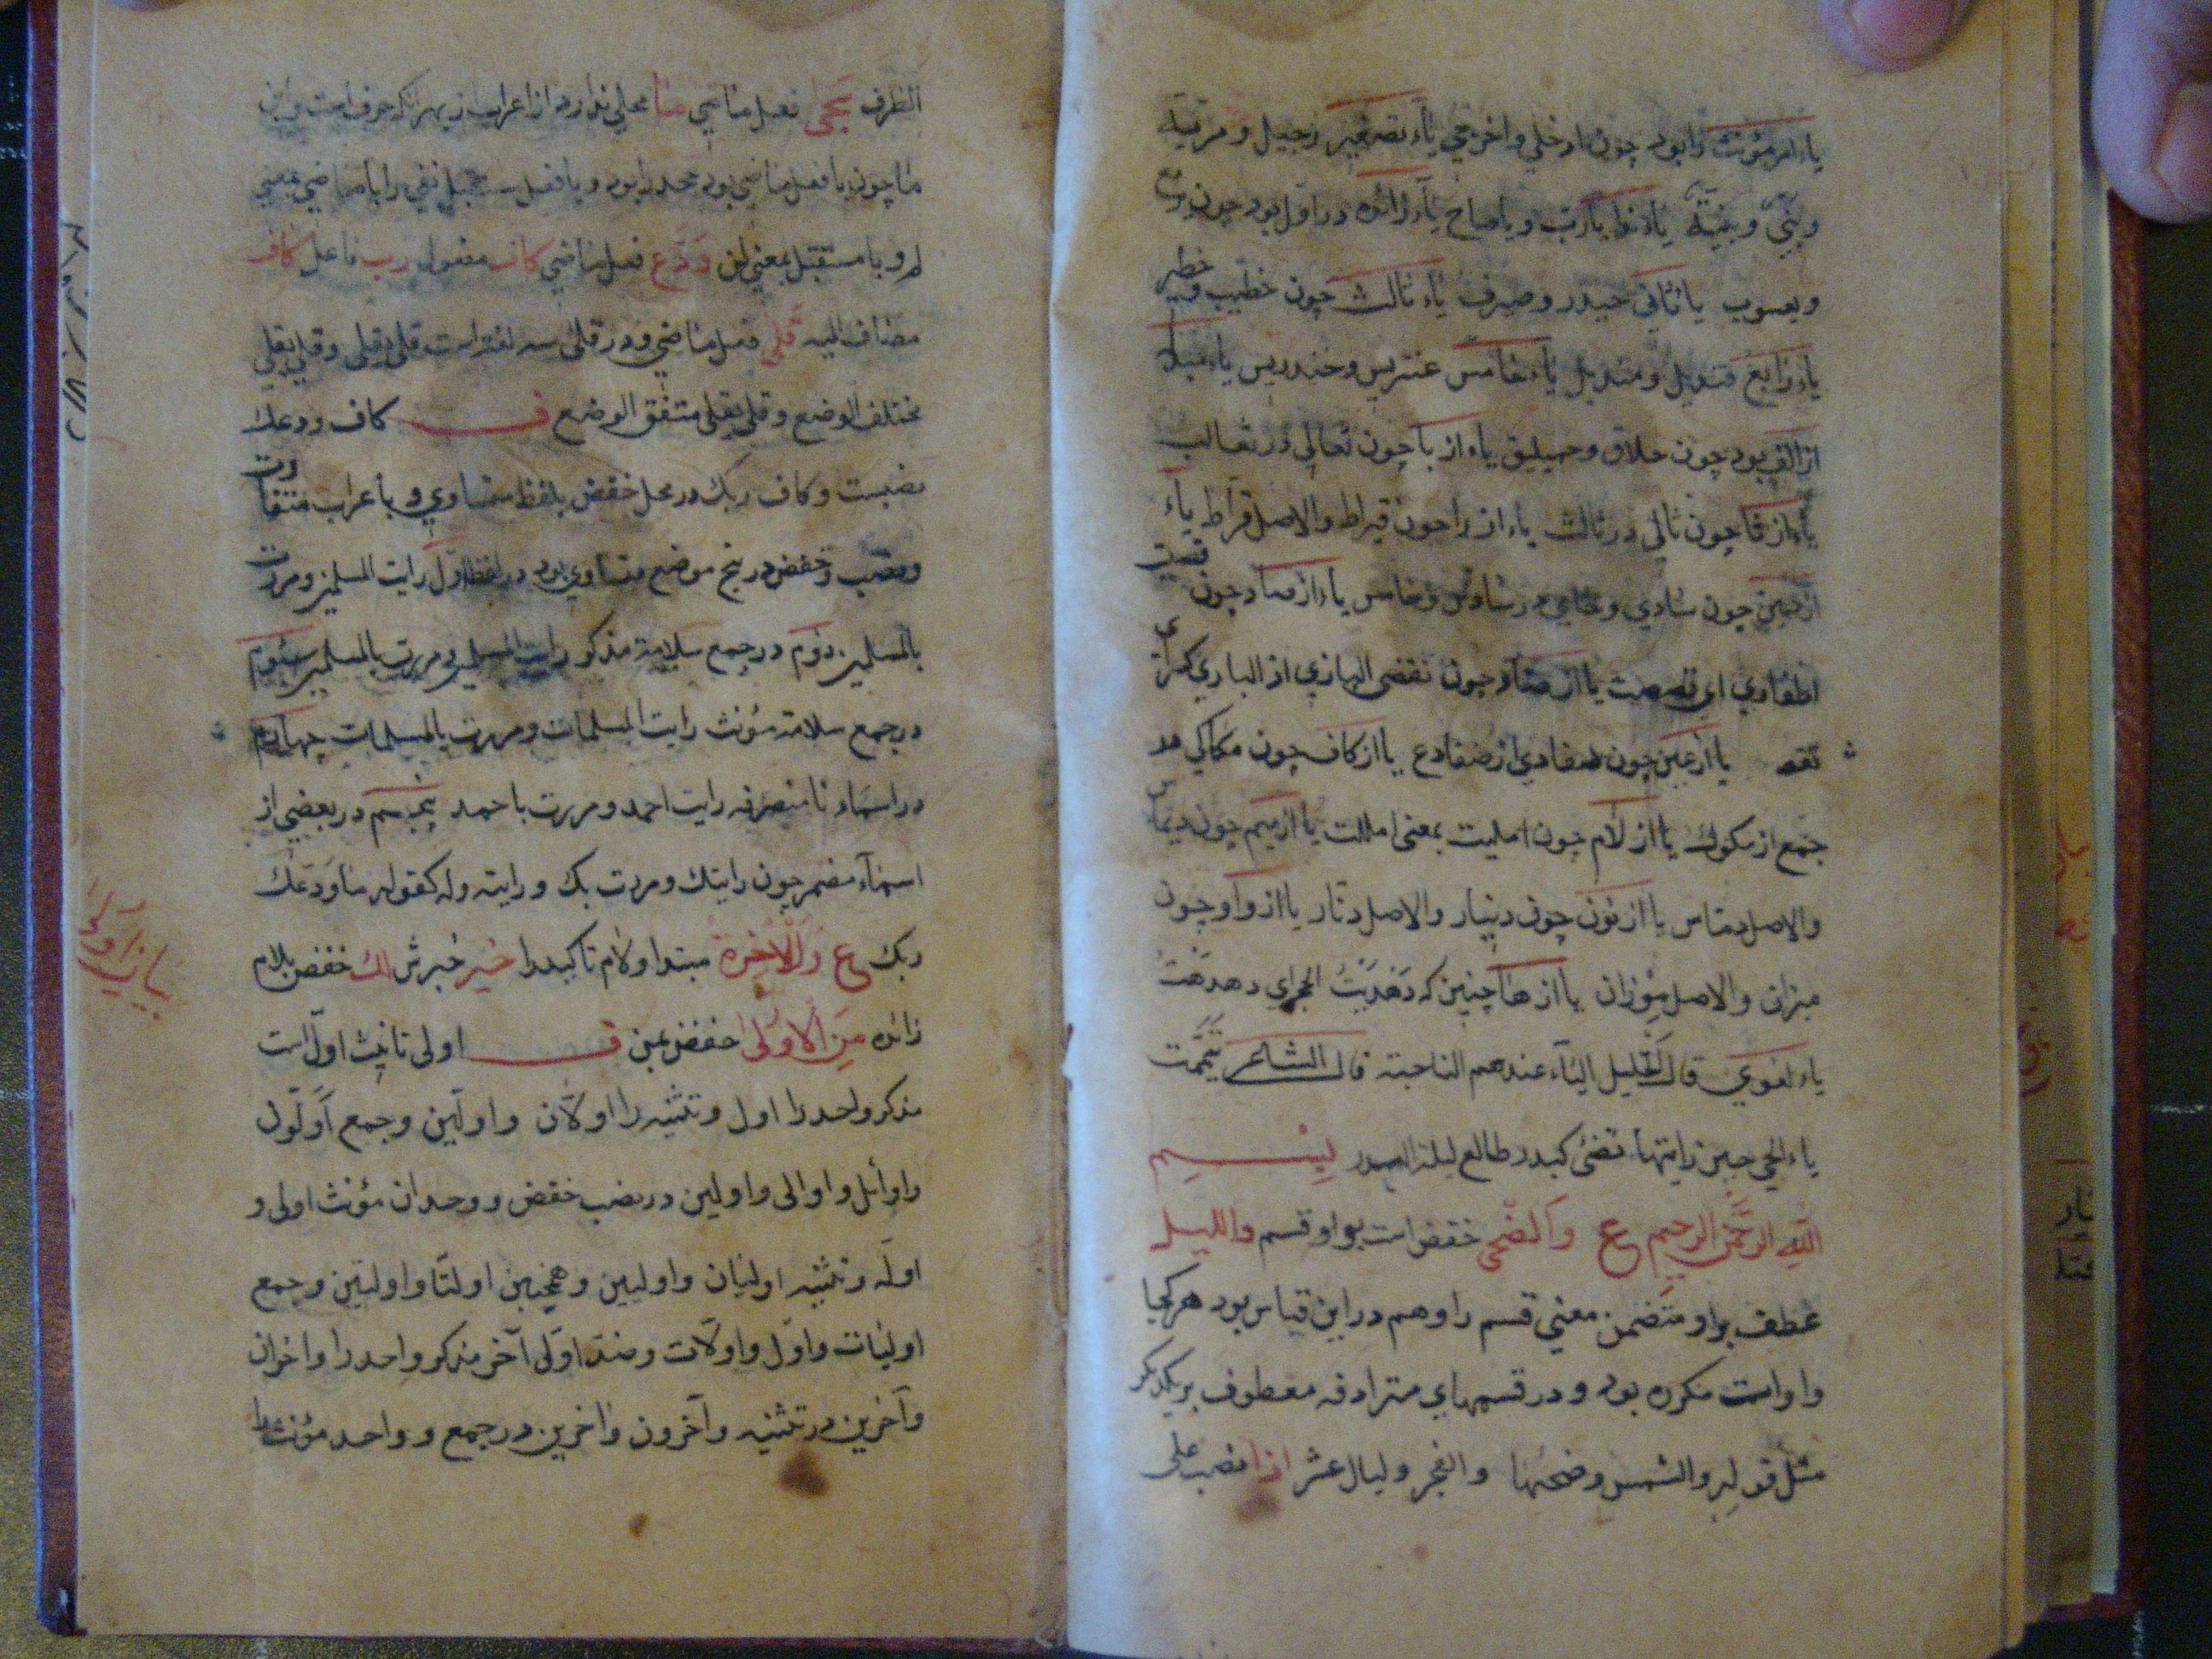 یاء امر مؤنث را بود چون ادخلي واخرجي یاء تصغیر رجیل و مرتبة
وبني وبنیة یاء ندا یارب ویاصاح یاء زائده در اول بود چون یرمع
ویعسوب یا ثانی حیدر وصیرف یاء ثالث چون خطیب وخطیر
یاء رابع قندیل ومندیل یاء خامس عنتریس وخندریس یاء مبدل
از الف بود چون حلاق وحمیلیق یاء از با چون ثعالی در ثعالب
یاء از ثا چون ثالی در ثالث یاء از را چون قیراط والاصل قراط یاء
از سین چون سادي وخامی در سادس وخامس یاء از صاد چون قصیت
اظفاري اي قصصت یا از ضاد چون تقضی البازي از البازي کسر اي
تقضـ یا از عین چون ضفادي از ضفادع یا از کاف چون مکاکي در
جمع از مکوك یا از لام چون املیت بمعنی امللت یا از میم چون دیماس
والاصل دماس یا از نون چون دینار والاصل دنار یا از واو چون
میزان والاصل مِوزان یا از ها چنین که دَهْدَیْتُ الحجر اي دهدهت
یاء لغوي قال الخلیل الیآء عندهم الناحیة قال الشاعر تَیَمَّمْت
یاء الحی حین رایتها، تضئ کبدر طالع لیلة البدر بِسْـــمِ
اللّهِ الرحمن الرحیم ع وَالضحی خفض است بواو قسم واللیل
عطف بواو متضمن معني قسم را وهم در این قیاس بود هر کجا
واو است مکرره بود و در قسمهاي مترادفه معطوف بر یکدیگر
مثل قوله والشمس وضحیها والفجر ولیال عشر اذا نصب علی
الظرف سَجَی فعل ماضي ما محلي ندارد از اعراب از بهر آنکه حرف است واین
ما چون با فعل ماضي بود جحد را بود و با فعل مستقبل نفي را با ماضي بمعني
لم و با مستقبل بمعني لن وَدَّعَ فعل ماضي کاف مفعول رب فاعل کاف
مضاف الیه قَلَی فعل ماضي و در قلی سه لغت است قلی یقلی وقلي یقلي
مختلف الوضع وقلی یقلی متفق الوضع فـــ کاف ودعك
نصبست وکاف ربك در محل خفض بلفظ متساوي و باعراب متفاوت
ونصب وخفض در پنج موضع متساوي بود در لفظ اول رایت المسلمین ومررت
بالمسلمین دوم در جمع سلامة مذکر رایت المسلمین ومررت بالمسلمین سئوم
در جمع سلامة مؤنث رایت المسلمات ومررت بالمسلمات چهارم
در اسماء نا منصرفه رایت احمد ومررت باحمد پنجم در بعضي از
اسماء مضمر چون رایتك ومررت بك ورایته وله کقوله ما وَدَّعَك
ربك ع وَلَلْآخِرَة مبتدا ولام تاکید را خَیر خبرش لك خفض بلام
زائده مِنَ الْاُولَی خفض بمن فـــ اولی تانیث اول است
مذکر واحد را اول وتثنیه را اولان واولین وجمع اولون
واوائل واوالی واولین در نصب خفض ووحدان مؤنث اولی و
اوله وتثنیه اولیان واولیین وهمچنین اولتا واولتین وجمع
اولیات واول واولات وضد اولی آخر مذکر واحد را واخران
وآخرین در تثنیه وآخرون واخرین در جمع و واحد مؤنث را